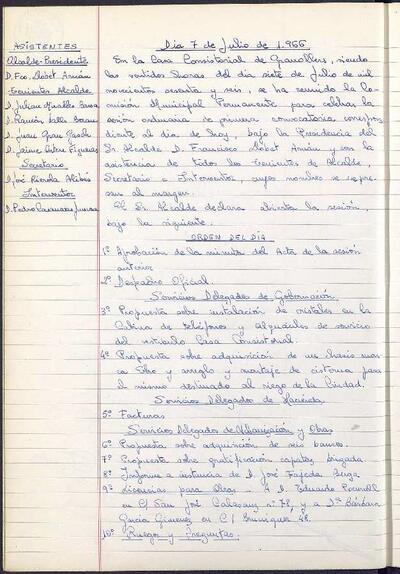 ASISTENTES
Alcalde-Presidente
D. Fco. Llobet Arnán
Tenientes Alcalde
D. Juan
D. Ramón
D. Juan
D. Jaime Figueras
Secretario
D. José
Interventor
D. Pedro
Día 7 de Julio de 1.966.
En la Casa Consistorial de Granollers, siendo
las veintidos horas del día siete de Julio de mil
novecientos sesenta y seis, se ha reunido la Co-
misión Municipal Permanente para celebrar la
sesión ordinaria de primera convocatoria correspon-
diente al día de hoy, bajo la Presidencia del
Sr. Alcalde D. Francisco Llobet Arnán y con la
asistencia de todos los Tenientes de Alcalde,
Secretario e Interventor, cuyos nombres se expre-
san al margen.
El Sr. Alcalde declara abierta la sesión,
bajo la siguiente.
ORDEN DEL DIA
1º Aprobación de la minuta del Acta de la sesión
anterior
2º Despacho Oficial.
Servicios Delegados de Gobernación.
3º Propuesta sobre instalación de cristales en la
cabina de teléfonos y alquileres de servicio
del vestíbulo Casa Consistorial.
4º Propuesta sobre adquisición de un chasis mar-
ca Ebro y arreglo y montaje de cisterna para
el mismo destinado al riego de la Ciudad.
Servicios Delegados de Hacienda
5º Facturas
Servicios Delegados de Urbanización y Obras
6º Propuesta sobre adquisición de seis bancos.
7º Propuesta sobre gratificación capataz brigada
8º Informe a instancia de D. José Fajeda Berga
9º Licencias para Obras - A D. Eduardo
en C/ San José Calasanz nº 78, y a Dª Bárbara
García Gimenez en C/ 48.
10º Ruegos y Preguntas.